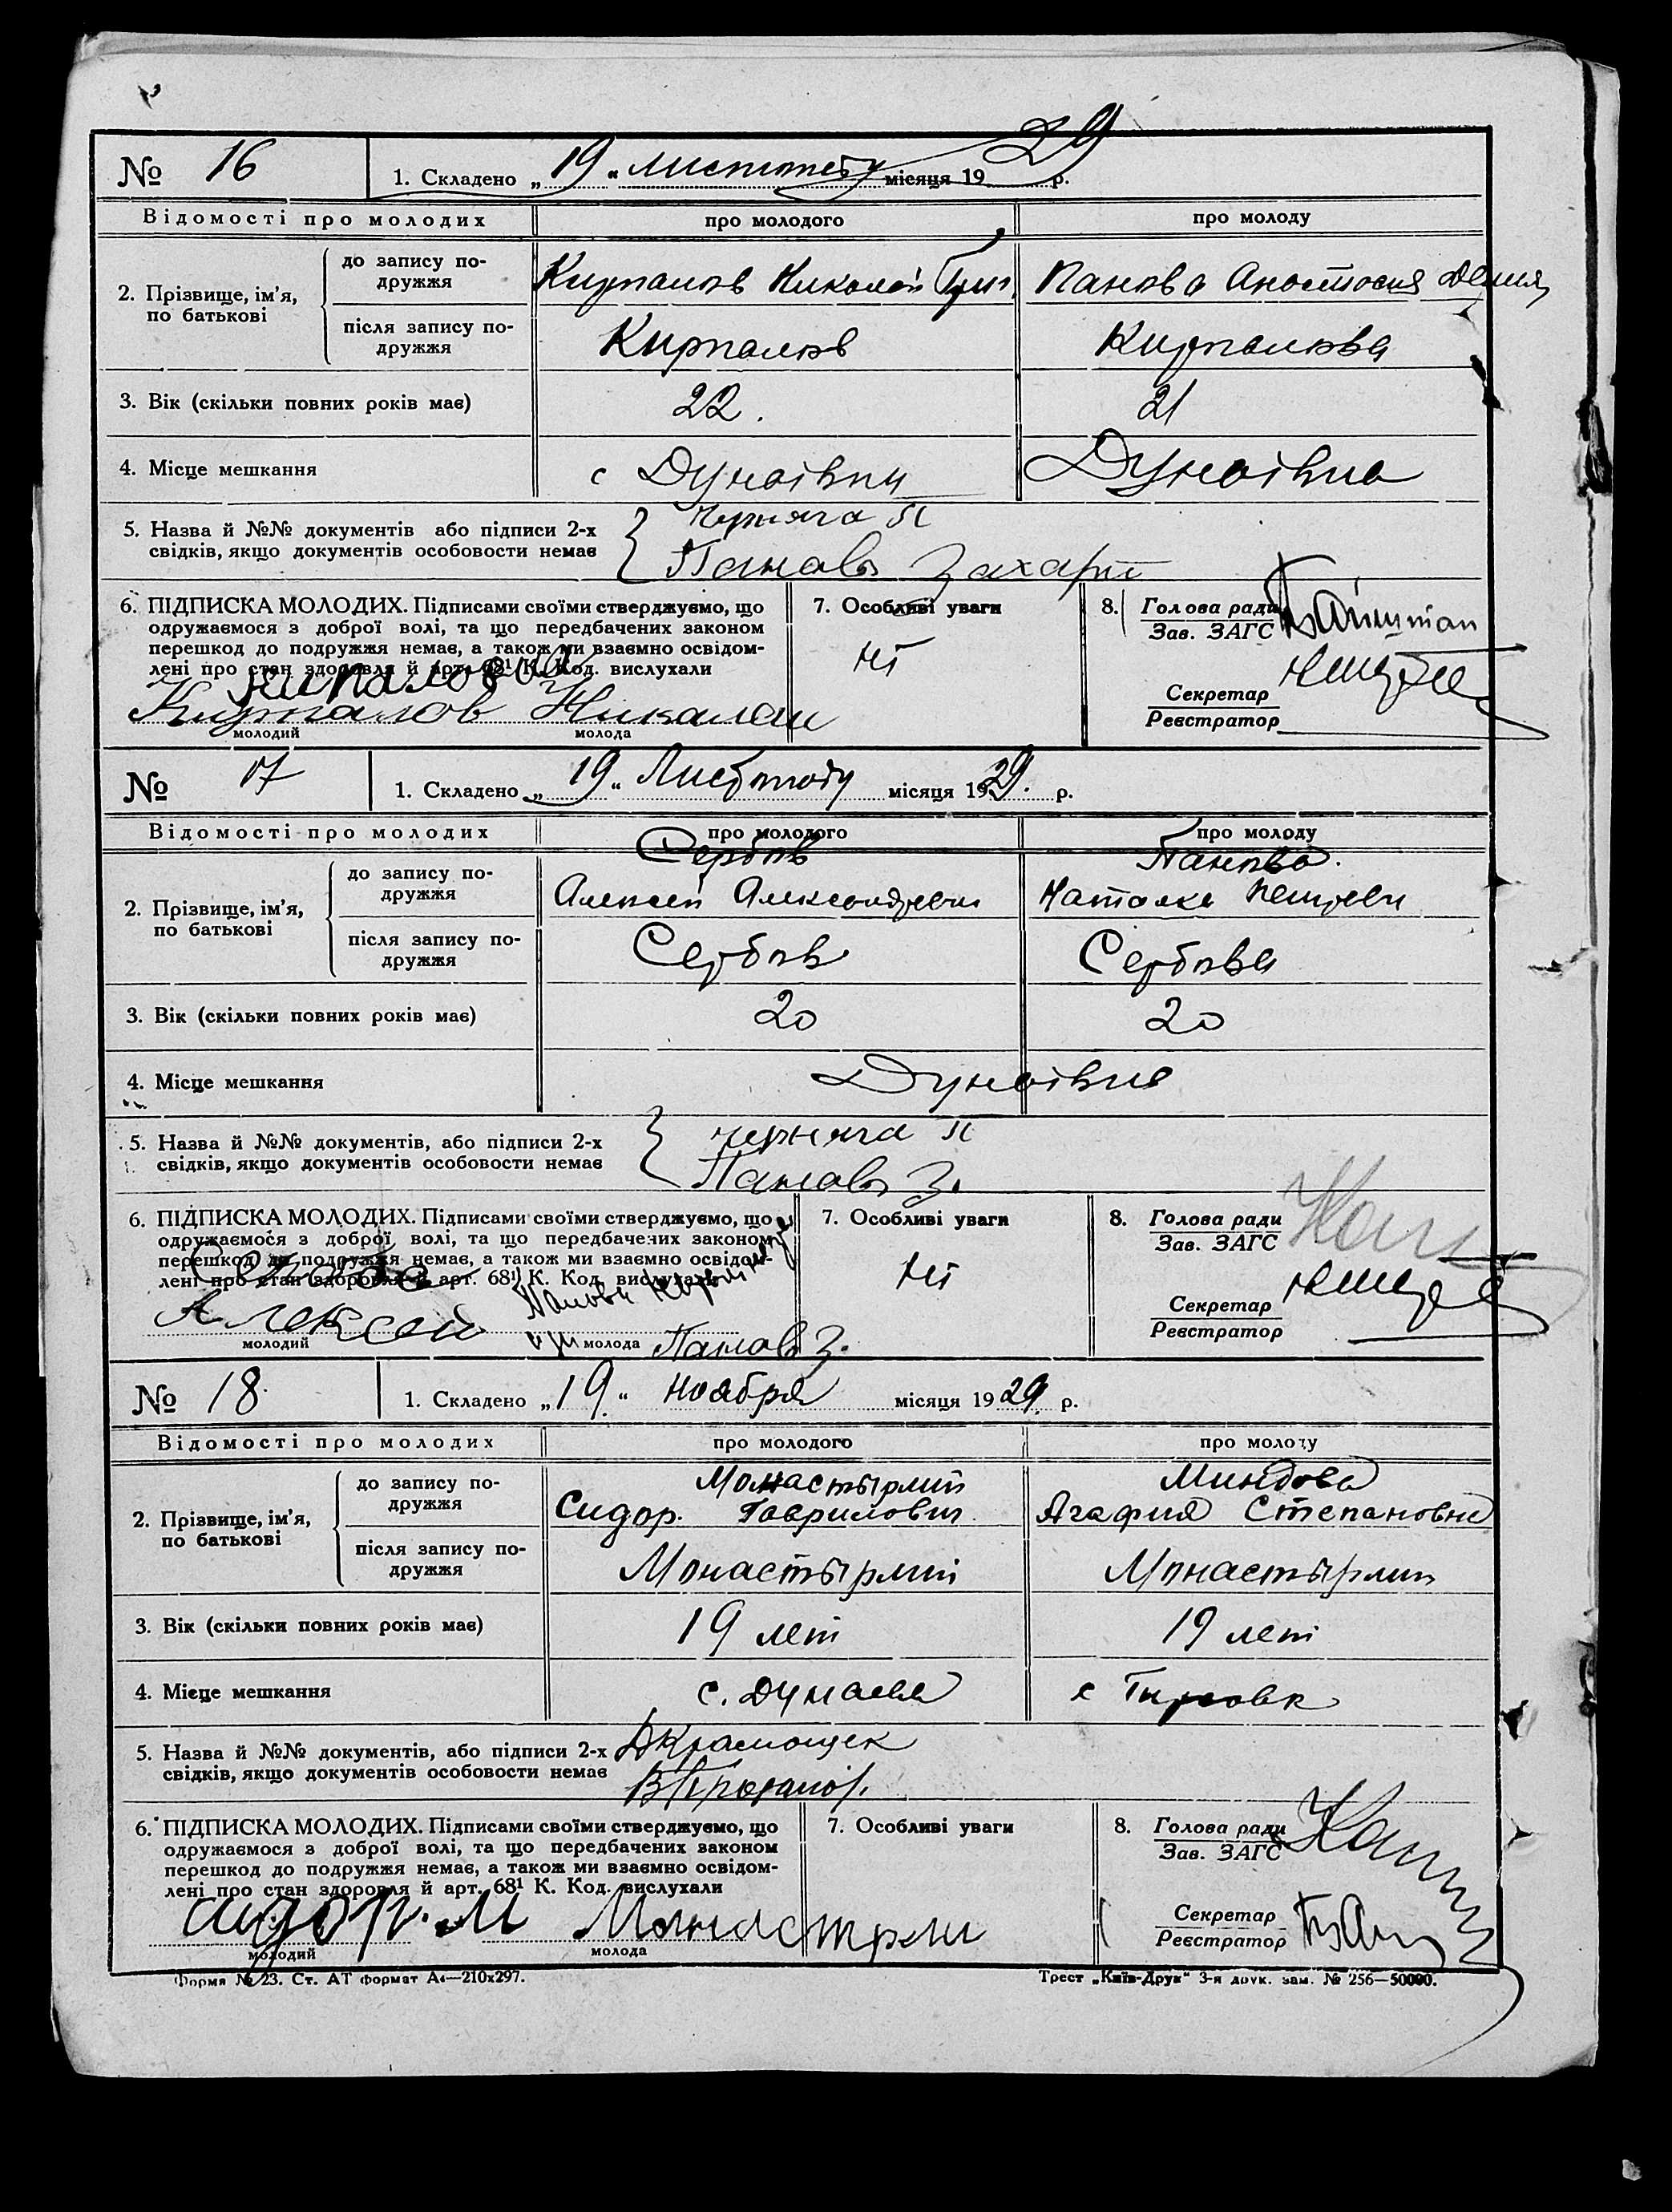 № 16 1. Складено „19“ листопаду місяця 1929 р.
Відомості про молодих про молодого про молоду
2. Прізвище, ім’я, по батькові
до запису подружжя Николай Григ. Панова
після запису подружжя
3. Вік (скільки повних років має) 22. 21
4. Місце мешкання с Дунаівци Дунаівка
5. Назва й №№ документів або підписи 2-х
свідків, якщо документів особовости немає
Черняга П
Панов Захарі
6. ПІДПИСКА МОЛОДИХ. Підписами своїми стверджуємо, що
одружаємося з доброї волі, та що передбачених законом
перешкод до подружжя немає, а також ми взаємно освідом-
лені про стан здоровля й арт. 68¹ К. Код. вислухали
молодий молода
7. Особливі уваги
Ні
8. Голова ради
Зав. ЗАГС
Секретар
Реєстратор
№ 17 1. Складено „19“ місяця 1929. р.
Відомості про молодих про молодого про молоду
2. Прізвище, ім’я, по батькові
до запису подружжя
Сербов Панова.
Алексей Александрови Наталка
після запису подружжя Сербов Сербова
3. Вік (скільки повних років має) 20 20
4. Місце мешкання Дунаівка
5. Назва й №№ документів, або підписи 2-х
свідків, якщо документів особовости немає
Черняга П
Панов З.
6. ПІДПИСКА МОЛОДИХ. Підписами своїми стверджуємо, що
одружаємося з доброї волі, та що передбачених законом
перешкод до подружжя немає, а також ми взаємно освідом-
лені про стан здоровля й арт. 68¹ К. Код. вислухали
Алексей
молодий молода Панов З.
7. Особливі уваги
Ні
8. Голова ради
Зав. ЗАГС
Секретар
Реєстратор
№ 18. 1. Складено „19“ ноября місяця 1929. р.
Відомості про молодих про молодого про молоду
2. Прізвище, ім’я, по батькові
до запису подружжя
Монастырлий Миндова
Сидор. Гаврилович Агафия Степановна
після запису подружжя Монастырлий Монастырлии
3. Вік (скільки повних років має) 19 лет 19 лет
4. Місце мешкання с. Дунаевка с
5. Назва й №№ документів, або підписи 2-х
свідків, якщо документів особовости немає
6. ПІДПИСКА МОЛОДИХ. Підписами своїми стверджуємо, що
одружаємося з доброї волі, та що передбачених законом
перешкод до подружжя немає, а також ми взаємно освідом-
лені про стан здоровля й арт. 68¹ К. Код. вислухали
Сидор. М
молодий молода
7. Особливі уваги
8. Голова ради
Зав. ЗАГС
Секретар
Реєстратор
Форма № 23. Ст. АТ формат А4—210х297. Трест „Київ-Друк“ 3-я друк. зам. № 256—50000.